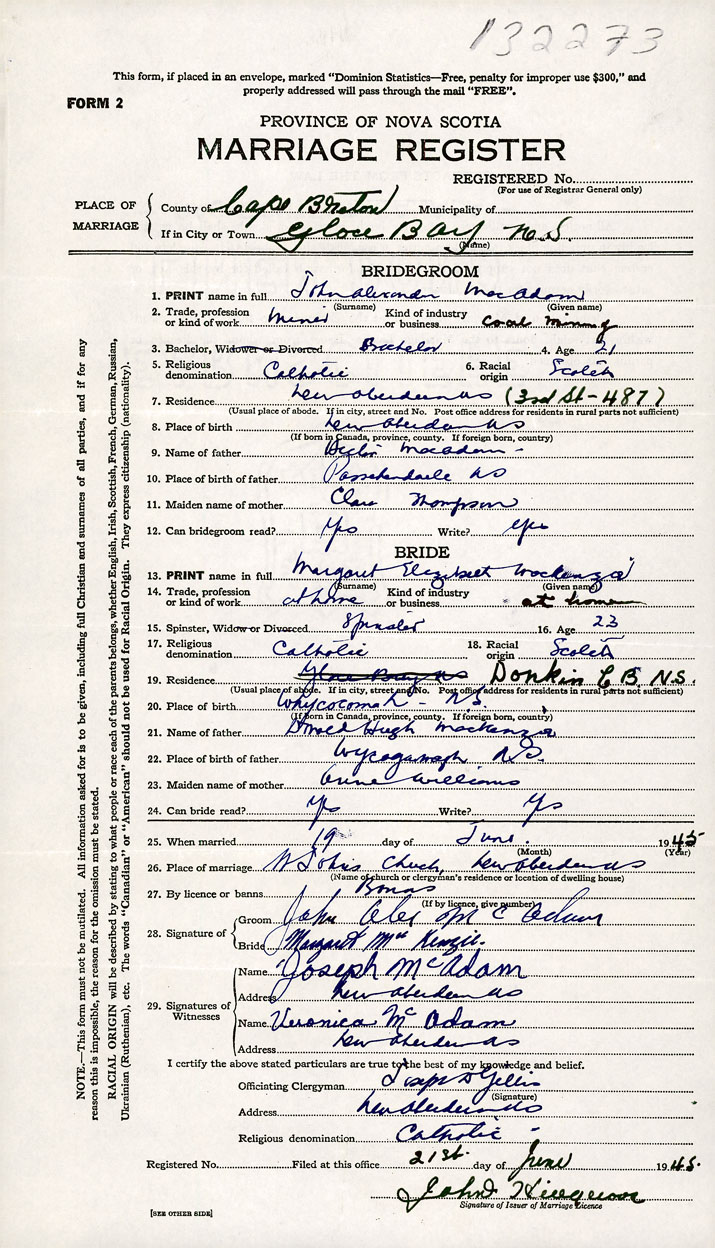 132273
This form, if placed in an envelope, marked “Dominion Statistics—Free, penalty for improper use $300,” and
properly addressed will pass through the mail “FREE”.
FORM 2
PROVINCE OF NOVA SCOTIA
MARRIAGE REGISTER
REGISTERED No.
(For use of Registrar General only)
PLACE OF MARRIAGE
County of Cape Breton Municipality of
If in City or Town Glace Bay N.S.
(Name)
BRIDEGROOM
1. PRINT name in full John Alexander MacAdam
(Surname) (Given name)
2. Trade, profession or kind of work Miner Kind of industry or business Coal mining
3. Bachelor, Widower or Divorced Bachelor 4. Age 21
5. Religious denomination Catholic 6. Racial origin Scotch
7. Residence New Aberdeen NS (3rd St - 487)
(Usual place of abode. If in city, street and No. Post office address for residents in rural parts not sufficient)
8. Place of birth New Aberdeen NS
(If born in Canada, province, county. If foreign born, country)
9. Name of father MacAdam
10. Place of birth of father Passchendaele NS
11. Maiden name of mother Clara Thompson
12. Can bridegroom read? Yes Write? Yes
BRIDE
13. PRINT name in full Margaret Elizabeth Mackenzie
(Surname) (Given name)
14. Trade, profession or kind of work at home Kind of industry or business at home
15. Spinster, Widow or Divorced Spinster 16. Age 23
17. Religious denomination Catholic 18. Racial origin Scotch
19. Residence Glace Bay NS Donkin C B. N.S.
(Usual place of abode. If in city, street and No. Post office address for residents in rural parts not sufficient)
20. Place of birth Whycocomah - N.S.
(If born in Canada, province, county. If foreign born, country)
21. Name of father Donald Hugh Mackenzie
22. Place of birth of father N.S.
23. Maiden name of mother Anne Williams
24. Can bride read? Yes Write? Yes
25. When married 19 day of June 1945
(Month) (Year)
26. Place of marriage St Johns Church, New Aberdeen NS
(Name of church or clergyman's residence or location of dwelling house)
27. By licence or banns Banns
(If by licence, give number)
28. Signature of
Groom John Alex McAdam
Bride Margaret MacKenzie.
29. Signatures of Witnesses
Name Joseph McAdam
Address New Aberdeen NS
Name Veronica McAdam
Address New Aberdeen NS
I certify the above stated particulars are true to the best of my knowledge and belief.
Officiating Clergyman Joseph D Gillis
(Signature)
Address New Aberdeen NS
Religious denomination Catholic -
Registered No. Filed at this office 21st. day of June 1945.
John
Signature of Issuer of Marriage Licence
[SEE OTHER SIDE]
NOTE.—This form must not be mutilated. All information asked for is to be given, including full Christian and surnames of all parties, and if for any
reason this is impossible, the reason for the omission must be stated.
RACIAL ORIGIN will be described by stating to what people or race each of the parents belongs, whether English, Irish, Scottish, French, German, Russian,
Ukrainian (Ruthenian), etc. The words “Canadian” or “American” should not be used for Racial Origin. They express citizenship (nationality).